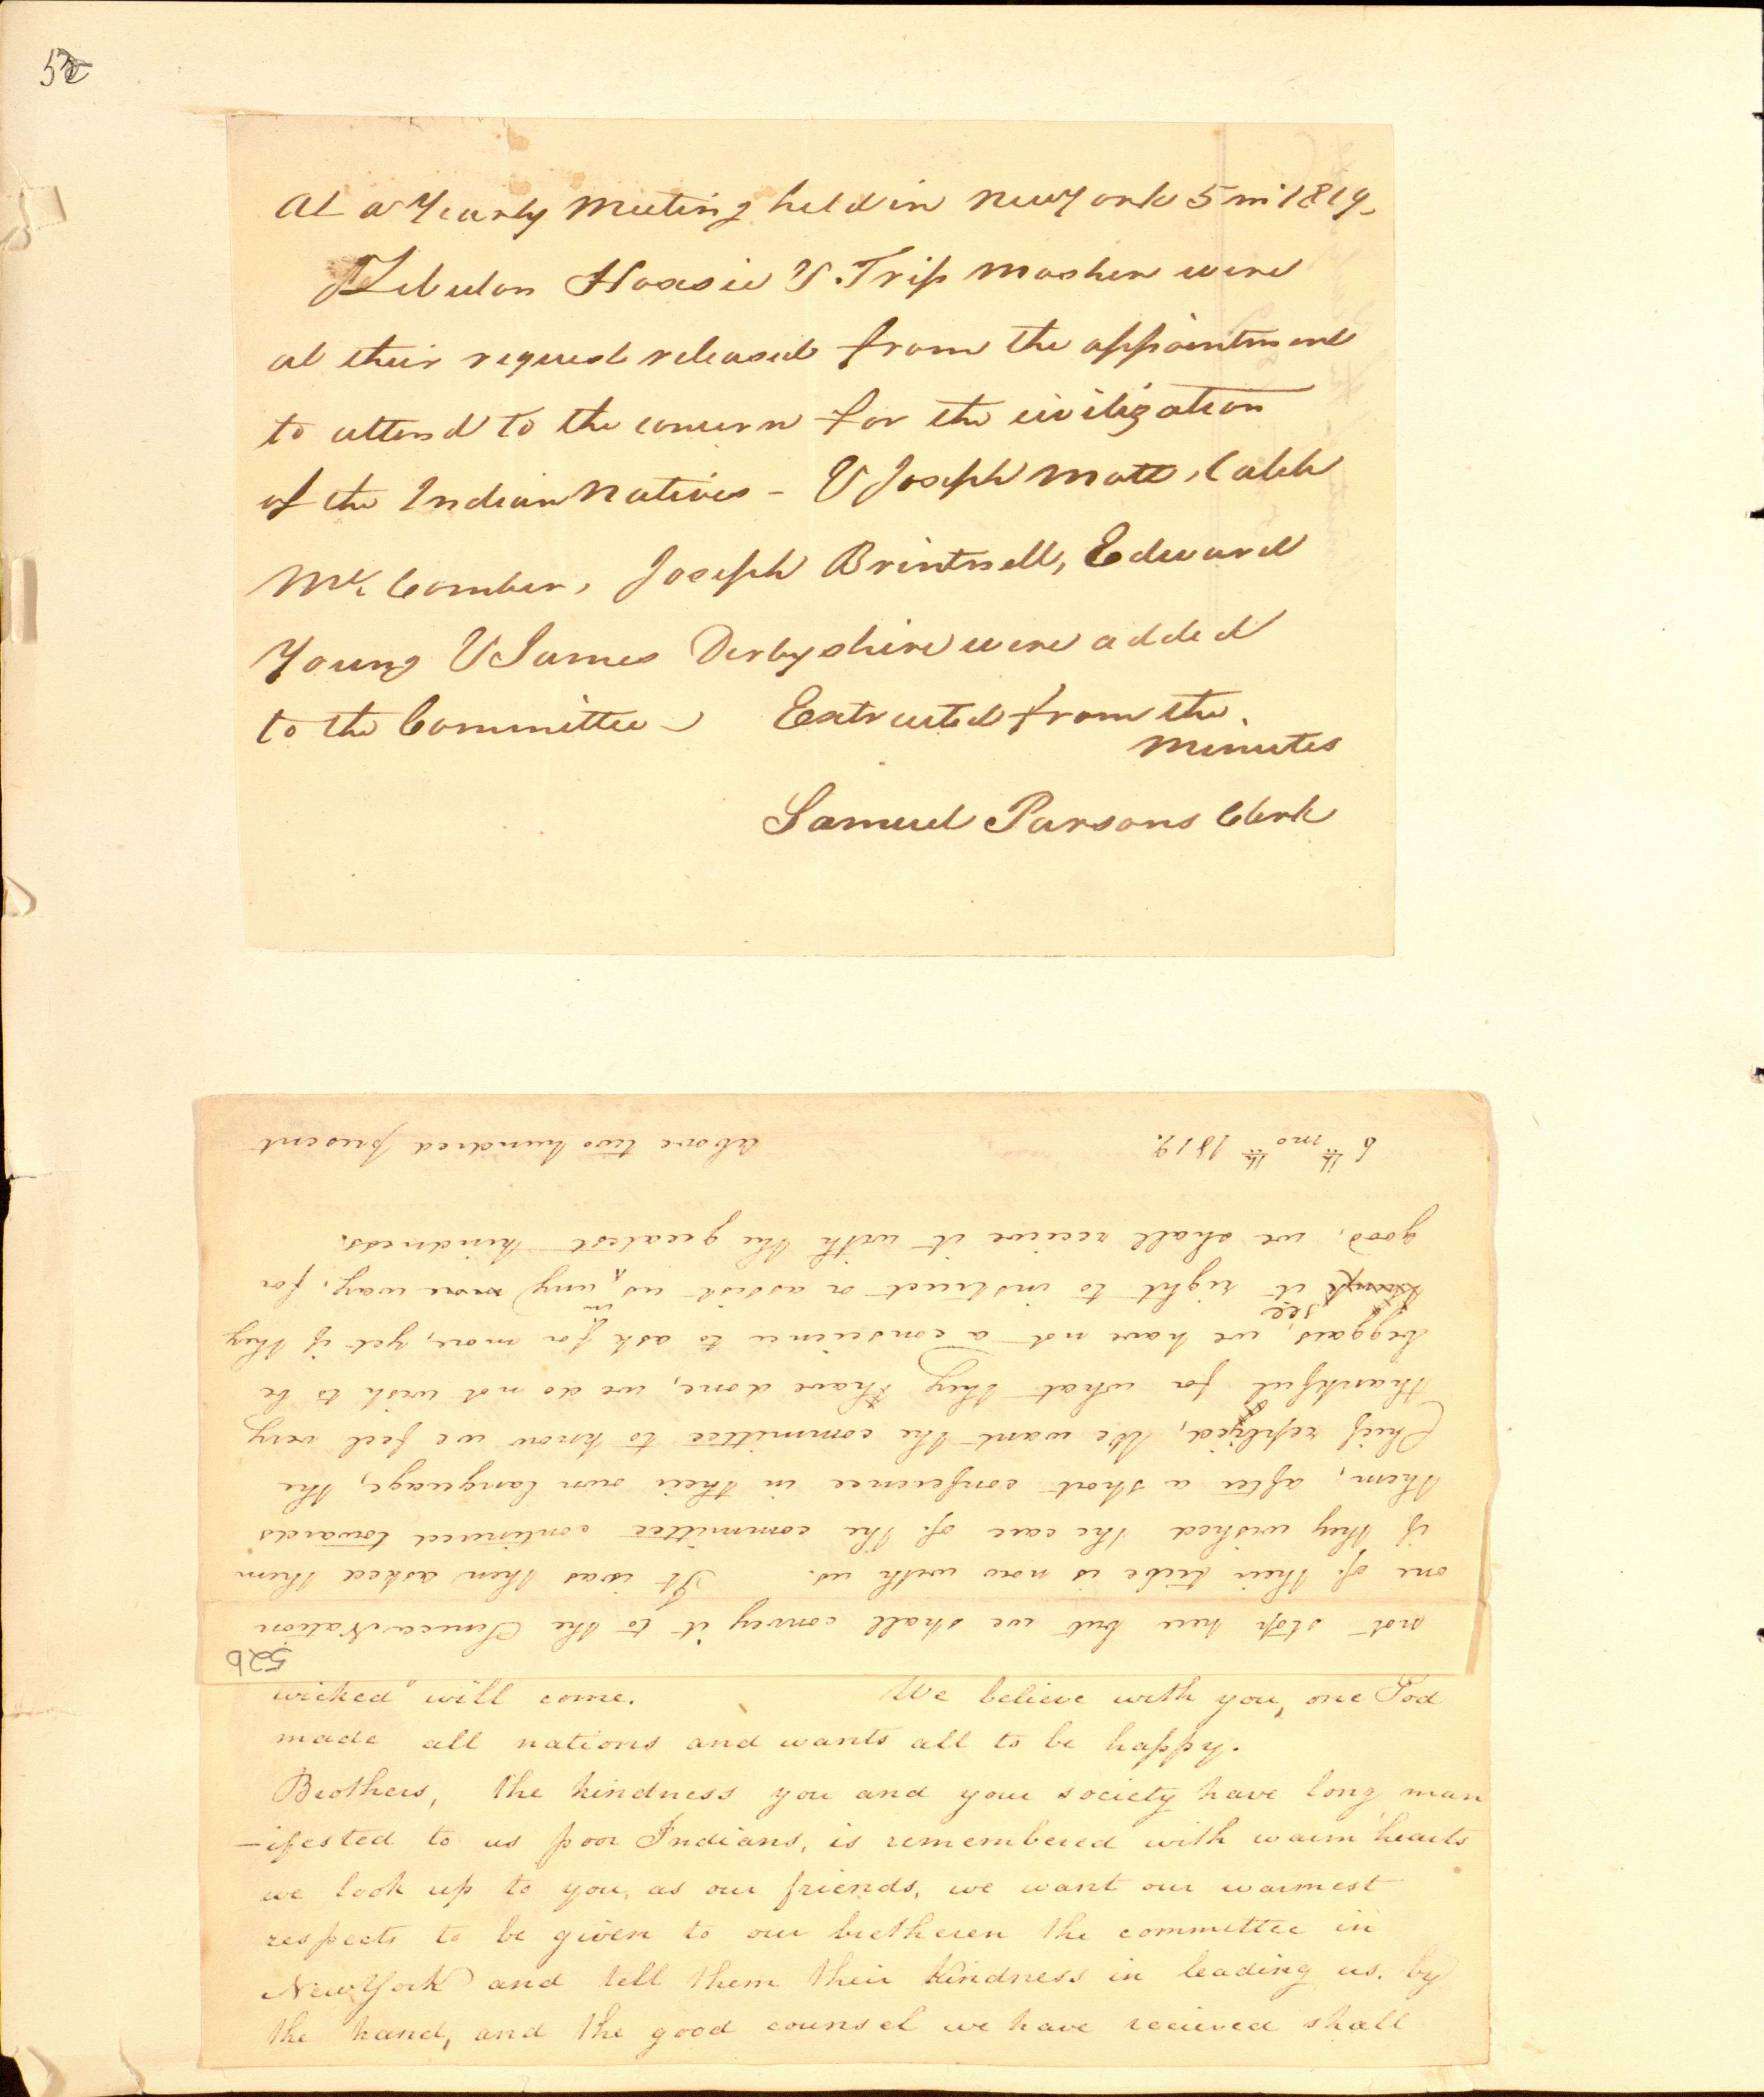 52
At a Yearly Meeting held in New York 5 m 1819.
Zebulon Hoxsie & Trip Mosher were
at their request released from the appointment
to attend to the concern for the civilization
of the Indian Natives - & Joseph Mott, Caleb
McComber, Joseph Brintnell, Edward
Young & James Derbyshire were added
to the Committee - Extracted from the
Minutes
Samuel Parsons Clerk
wicked will come. We believe with you, one God
made all nations and wants all to be happy.
Brothers, the kindness you and your society have long man
-ifested to us poor Indians, is remembered with warm hearts
we look up to you, as our friends, we want our warmest
respects to be given to our bretheren the committee in
New York and tell them their kindness in leading us by
the hand, and the good counsel we have recieved shall
52b
not stop here but we shall convey it to the Seneca Nation
one of their tribe is now with us. It was then asked them
if they wished the care of the committee continued towards
them, after a short conference in their own language, the
Chief replyed, We want the committee to know we feel very
thankful for what they have done, we do not wish to be
beggars, we have not a conscience to ask for more, yet if they
see it right to instruct or assist us in any more way, for
good, we shall receive it with the greatest kindness.
6th mo 1819. Above two hundred present